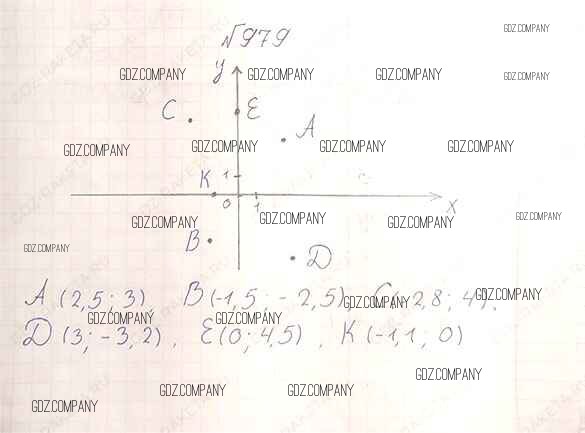 №979
y
GDZ.COMPANY
GDZ.COMPANY GDZ.COMPANY GDZ.COMPANY GDZ.COMPANY
C E A
GDZ.COMPANY GDZ.COMPANY GDZ.COMPANY GDZ.COMPANY
K 1
0 1 x
GDZ.COMPANY GDZ.COMPANY GDZ.COMPANY GDZ.COMPANY
GDZ.COMPANY B D
A (2,5; 3) B(-1,5; -2,5), C(-2,8; 4), GDZ.COMPANY GDZ.COMPANY
GDZ.COMPANY GDZ.COMPANY
D (3; -3,2), E(0; 4,5), K(-1,1; 0)
GDZ.COMPANY
GDZ.COMPANY GDZ.COMPANY
GDZ.COMPANY